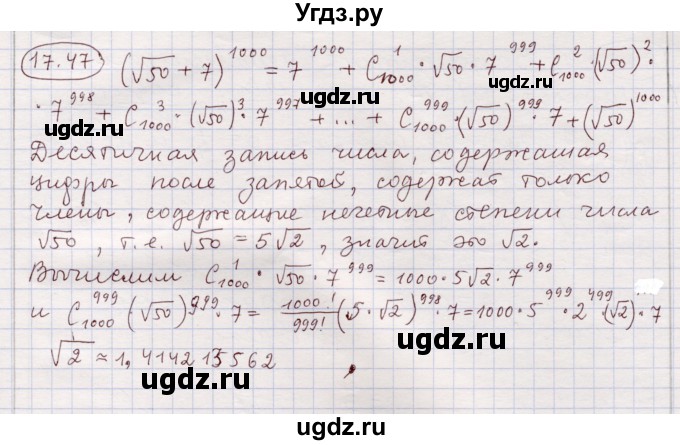 Угдз.ру
17.47 (√50 + 7)^1000 = 7^1000 + C^1_1000 · √50 · 7^999 + C^2_1000 · (√50)^2 ·
· 7^998 + C^3_1000 · (√50)^3 · 7^997 + ... + C^999_1000 · (√50)^999 · 7 + (√50)^1000
Десятичная запись числа, содержащая
цифры после запятой, содержат только
члены, содержащие нечетные степени числа
√50, т.е. √50 = 5√2, значит это √2.
Вычислим C^1_1000 · √50 · 7^999 = 1000 · 5√2 · 7^999
и C^999_1000 (√50)^999 · 7 = 1000!/999! (5 · √2)^998 · 7 = 1000 · 5^999 · 2^499 · (√2) · 7
√2 ≈ 1,414213562
ugdz.ru
ugdz.ru
ugdz.ru
ugdz.ru
ugdz.ru
ugdz.ru
ugdz.ru
ugdz.ru
Угдз.ру